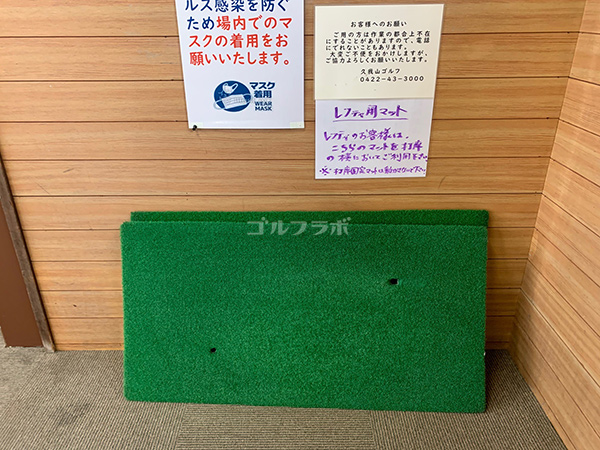 ルス感染を防ぐ
ため場内でのマ
スクの着用をお
願いいたします。
マスク
着用
WEAR
MASK
お客様へのお願い
ご用の方は作業の都合上不在
にすることがありますので、電話
にでれないこともあります。
大変ご不便をおかけしますが、
ご協力よろしくお願いいたします。
久我山ゴルフ
0422-43-3000
レフティ用マット
レフティのお客様は、
こちらのマットを打席
の横においてご利用下さい。
※打席固定マットは動かさないで下さい。
ゴルフラボ